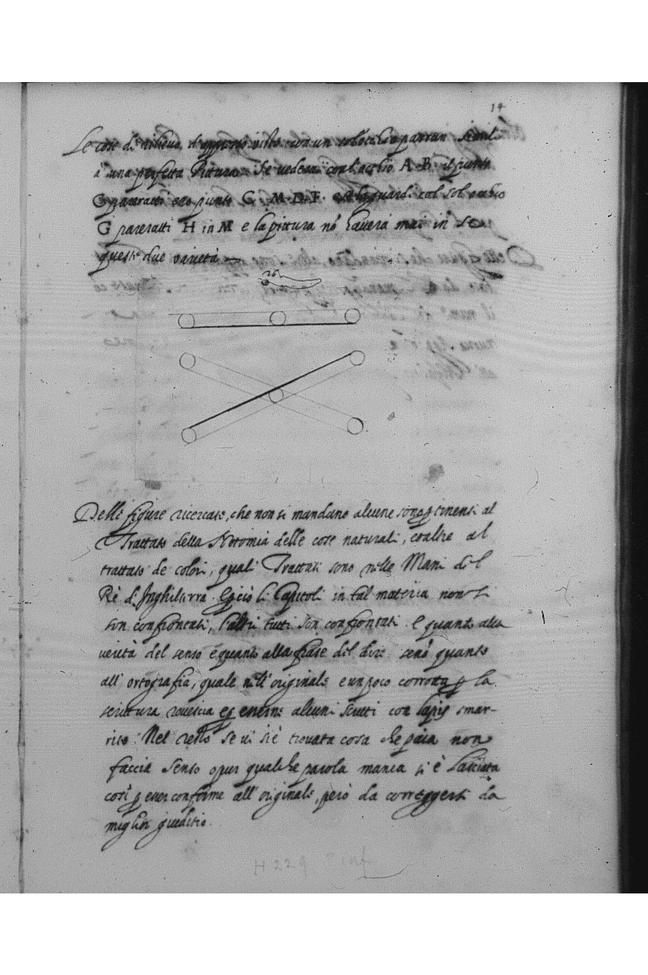 14
Le cose di rilievo, d'appresso viste con un sol occhio parran simili
a una perfetta Pittura. Se vedrai con l'occhio A. B. il punto
G pareratti esso punto C. M. D. F. e se lo guardi col sol occhio
G pareratti H in M e la pittura nō haverà mai in se
queste due varietà
26
Delle figure ricercate, che non si mandano alcune sono ꝑtinenti al
Trattato della Notomia delle cose naturali, et altre al
trattato de colori, quali Trattati sono nelle Mani del
Rè d'Inghilterra. E ꝑciò li Capitoli in tal materia non si
son confrontati, l'altri tutti son confrontati. e quanto alla
verità del senso e quanto alla frase del dire. senō quanto
all'ortografia, quale nell'originale e un poco corrotta ꝑ la
scrittura rovescia et essere alcuni scritti con lapis smar-
rito: Nel resto se vi si è trovata cosa che paia non
faccia senso opur qualche parola manca si è lasciata
così ꝑ esser conforme all'originale, però da correggersi da
miglior giuditio.
H 229 inf